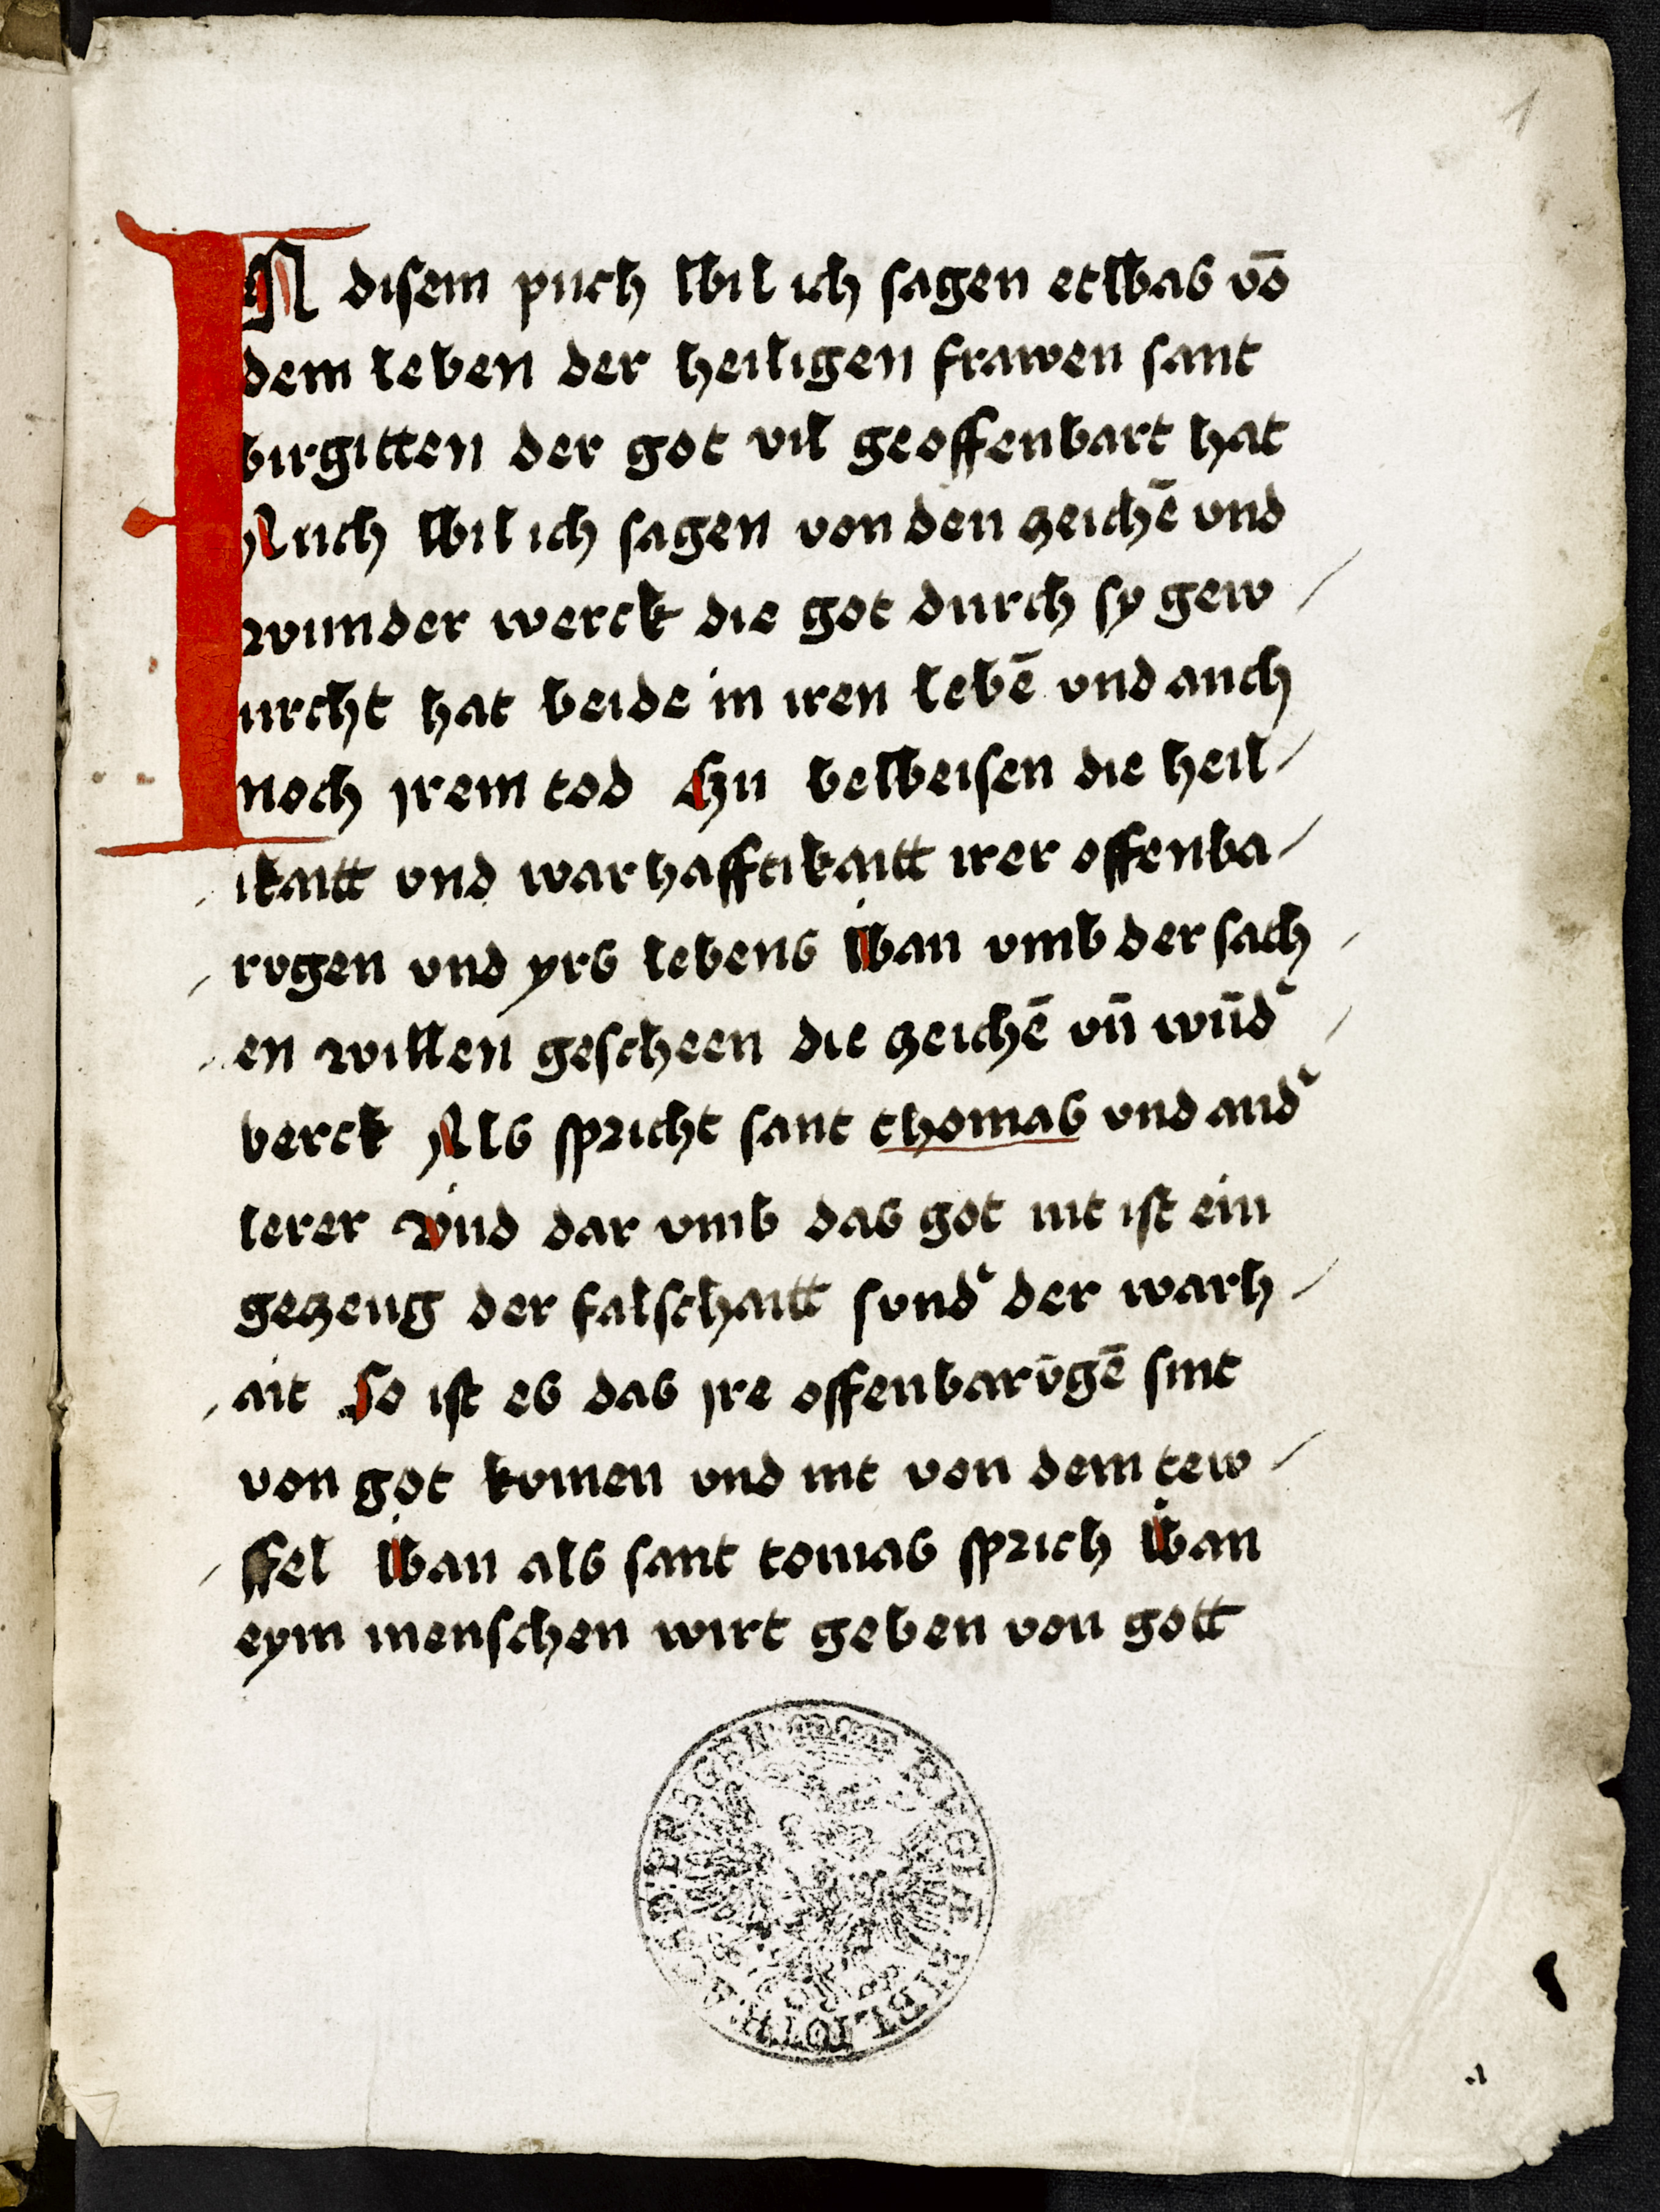 1
IN disem puch wil ich sagen etwas vō
dem leben der heiligen frawen sant
birgitten der got vil geoffenbart hat
Auch wil ich sagen von den zeichē vnd
wunder werck die got durch sy gew /
urcht hat beide in iren lebē vnd auch
noch jrem tod Zu beweisen die heil /
/ ikaitt vnd warhafftikaitt irer offenba /
/ rvgen vnd yrs lebens Wan vmb der sach /
/ en willen gescheen die zeichē vn̄ wūd' /
berck Als spricht sant thomas vnd and'
lerer Vnd dar vmb das got nit ist ein
gezeug der falschaitt svnd' der warh /
/ ait So ist es das jre offenbarv̄gē sint
von got kvmen vnd nit von dem tew /
/ ffel Wan als sant tomas sprich Wan
eym menschen wirt geben von gott
REGIAE BIBLIOTH. ACAD. PRAGEN.